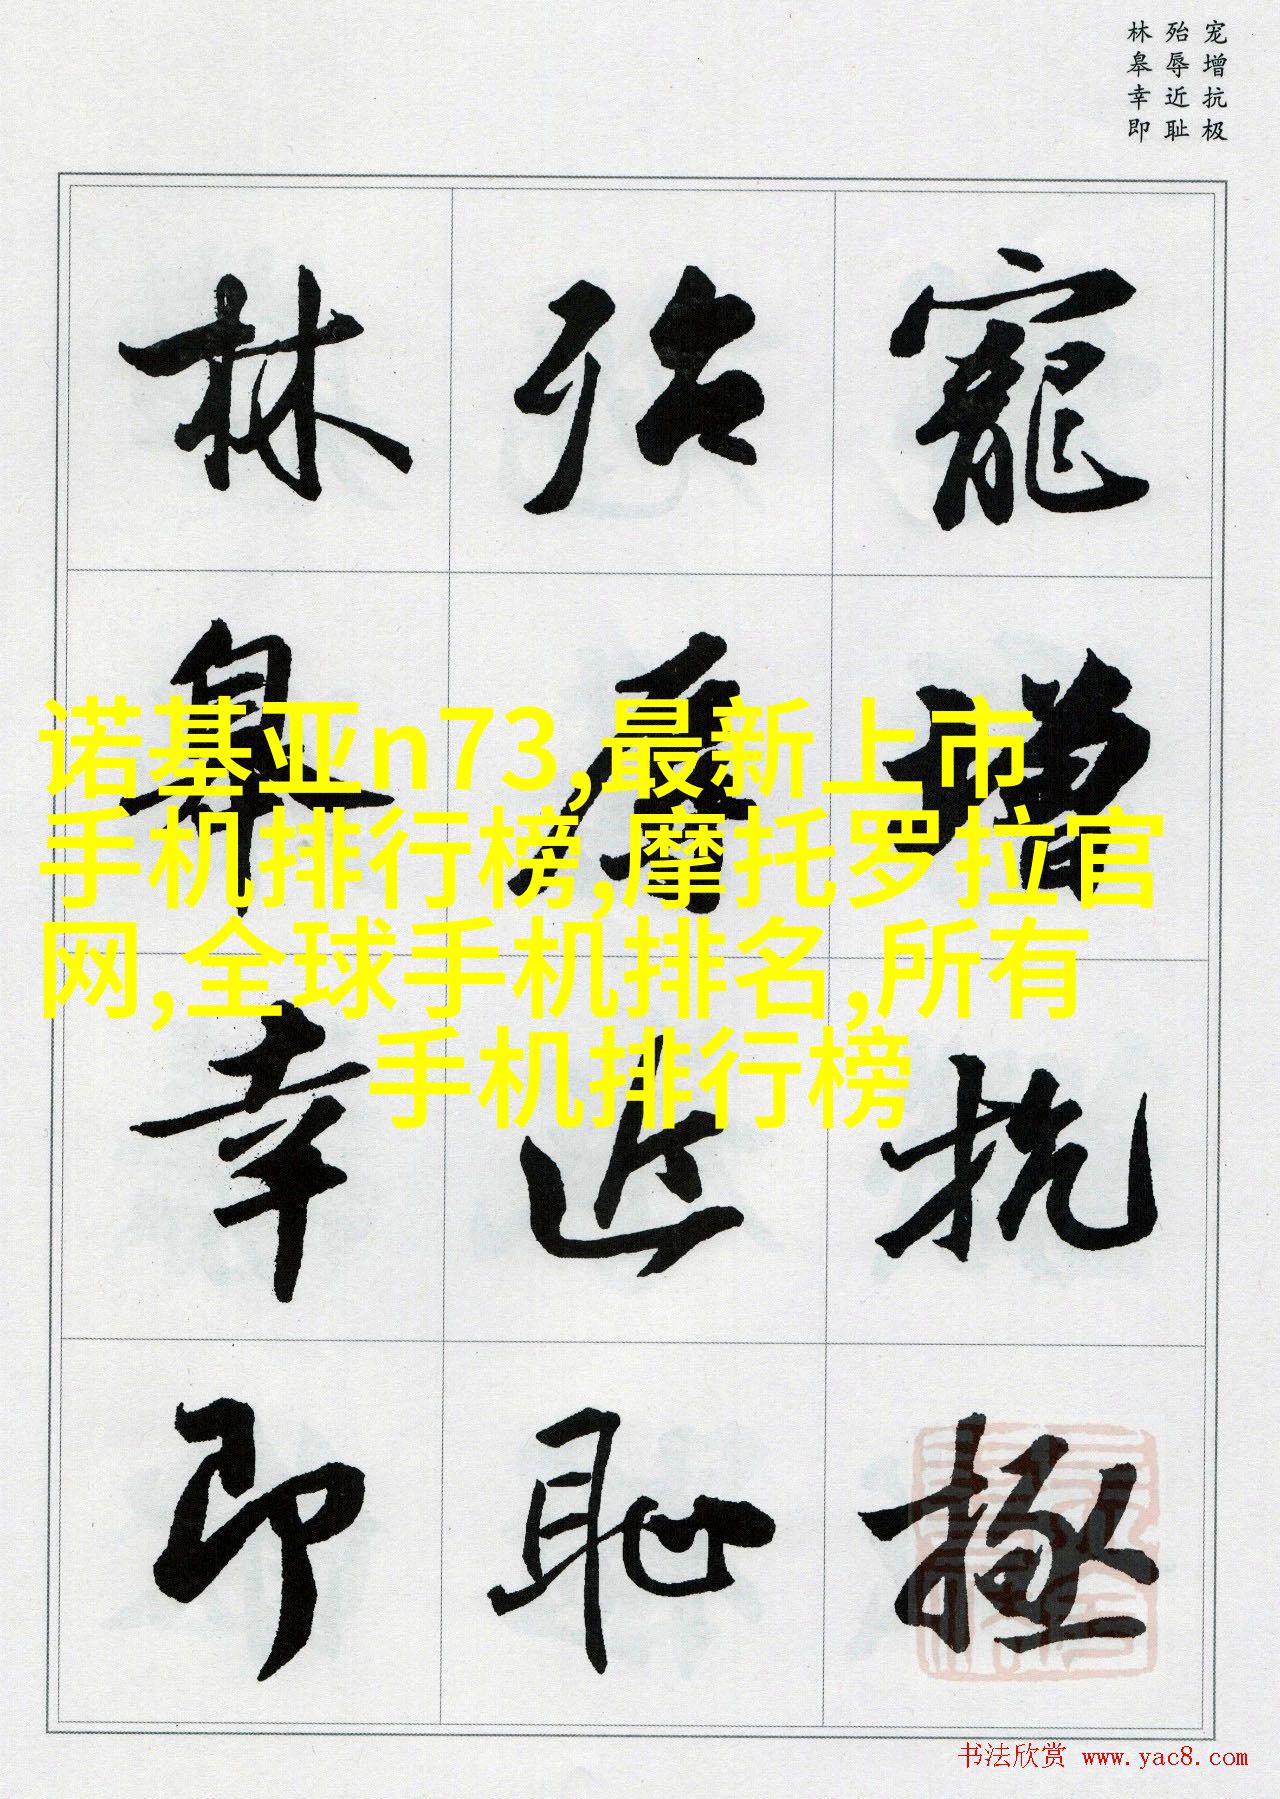 宠增抗极
殆辱近耻
林皋幸即
寵增抗極
殆辱近恥
林皋幸即
诺基亚n73,最新上市
手机排行榜,摩托罗拉官
网,全球手机排名,所有
手机排行榜
书法欣赏 www.yac8.com